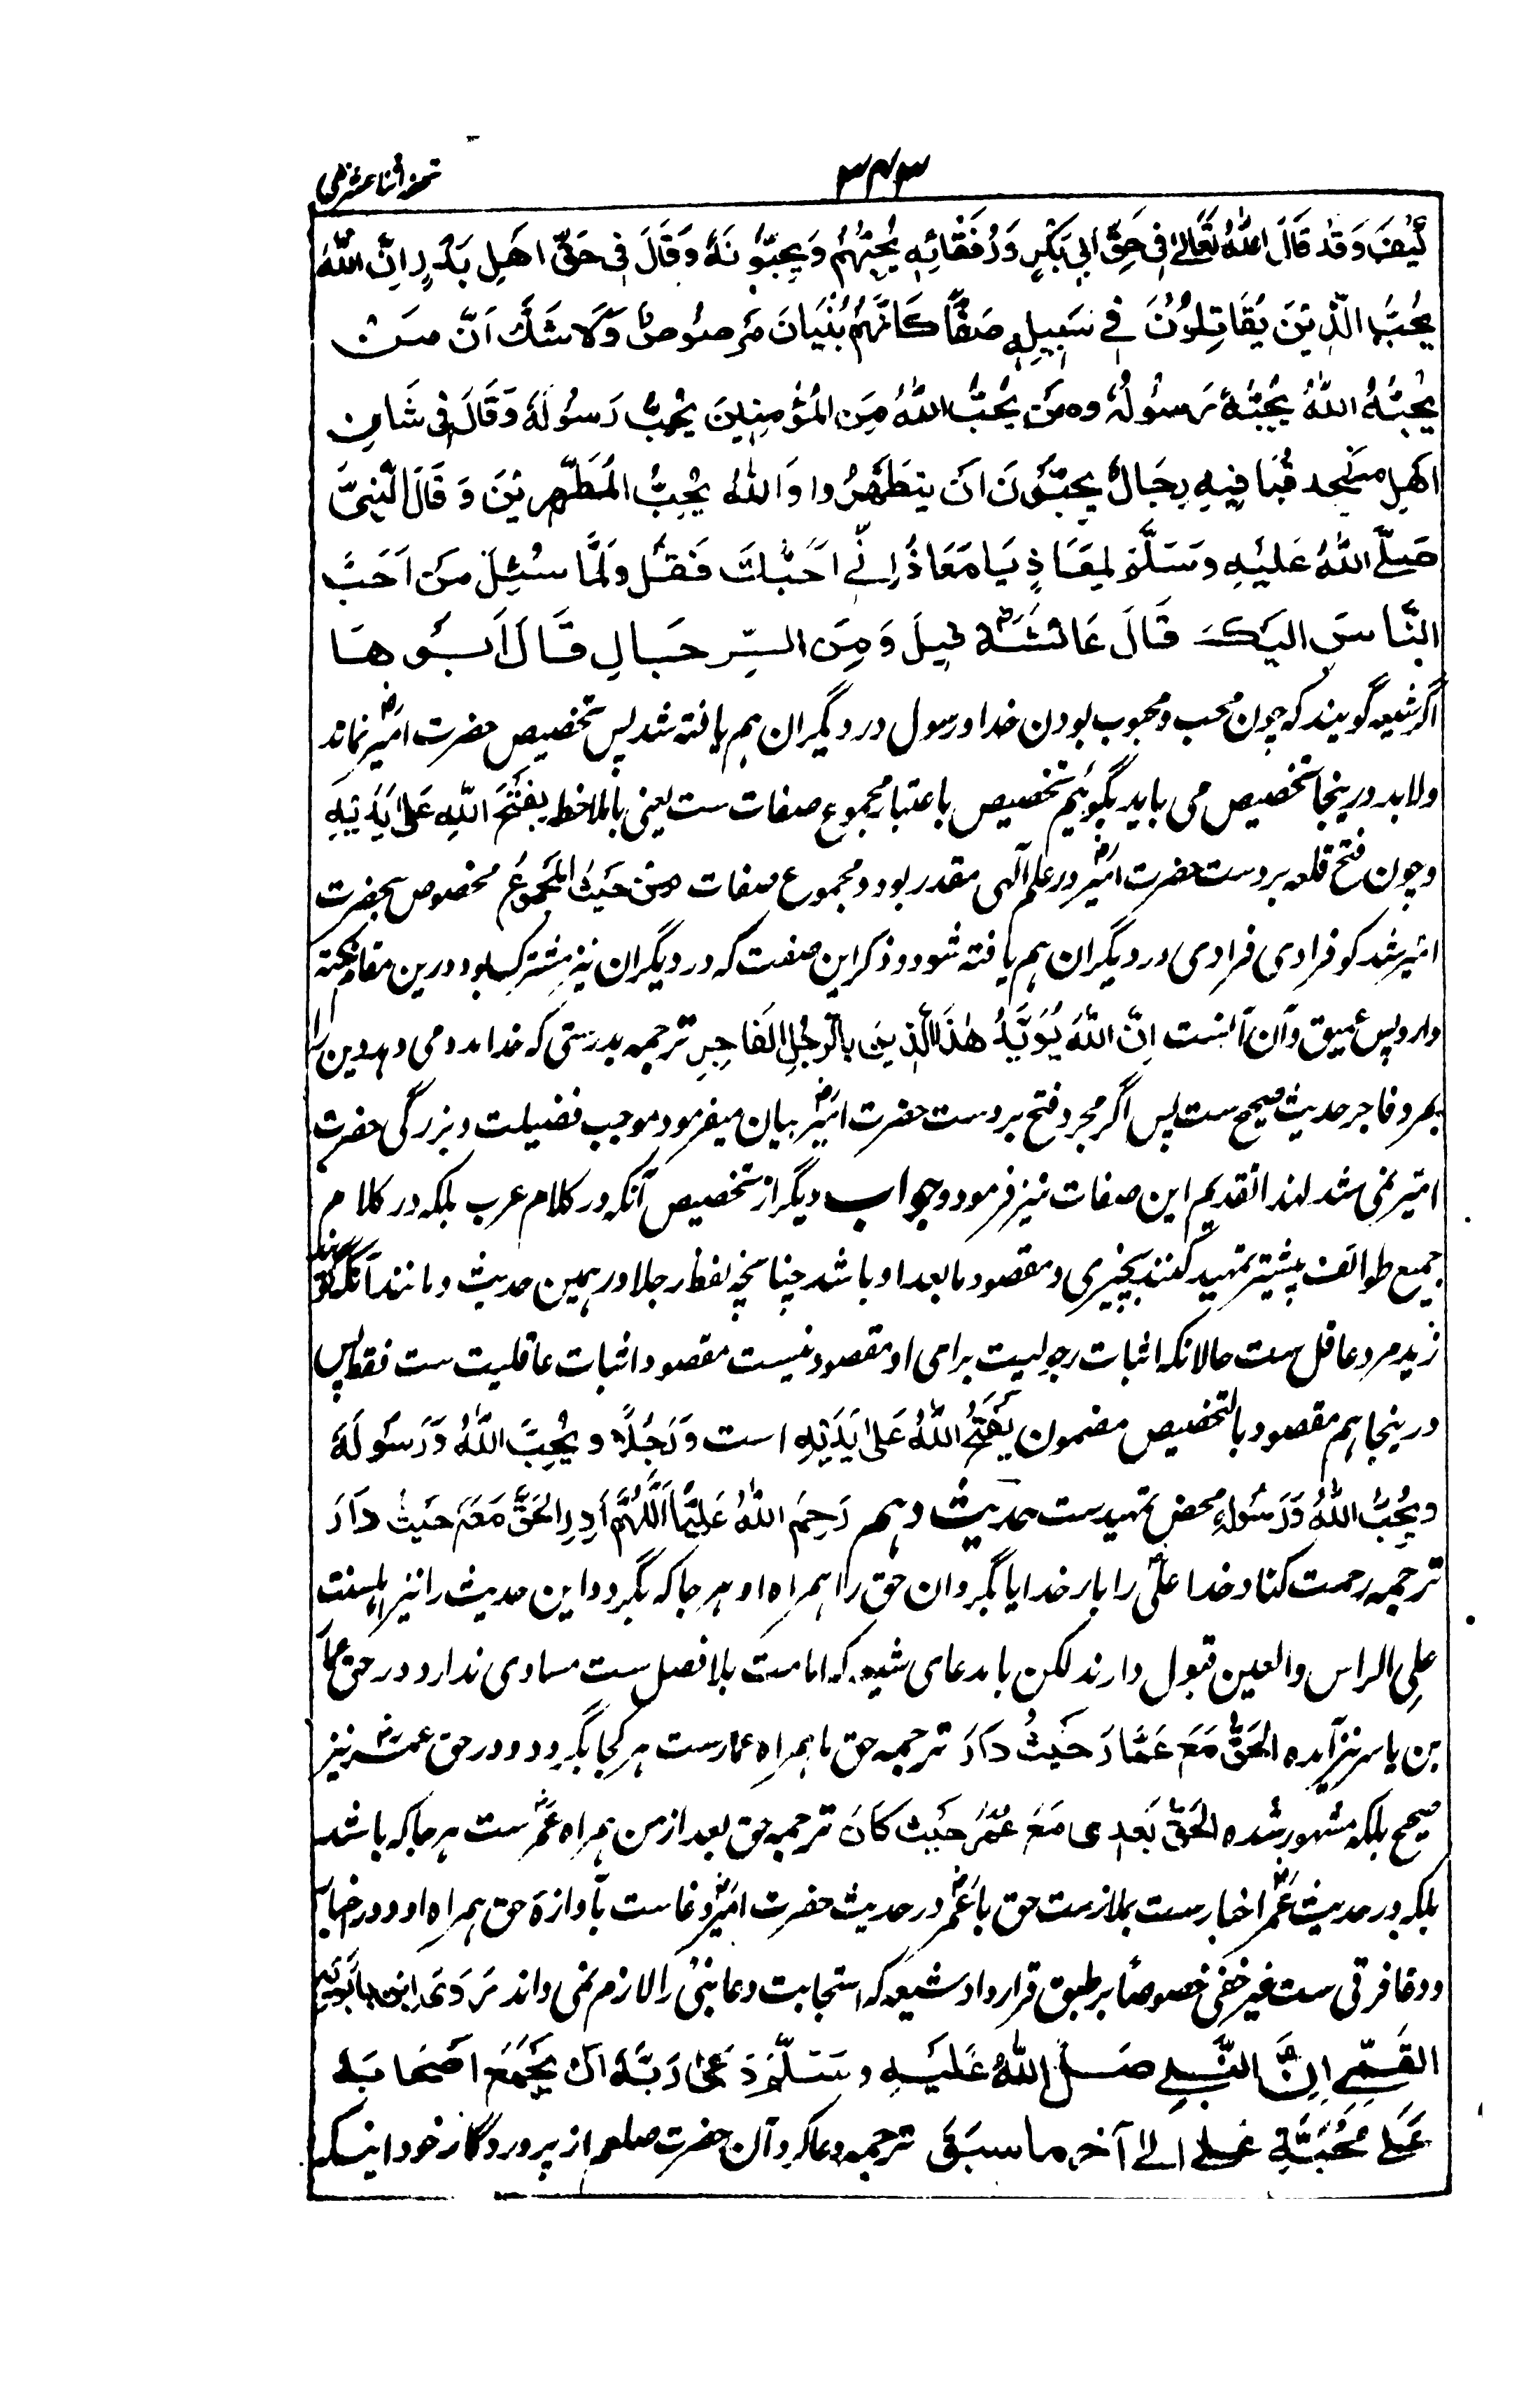 ۳۴۳
تحفه اثنا عشریه
كَيْفَ وَقَد قَالَ اللهُ تَعَالىٰ فِي حَقِّ اَبِي بَكْرٍ وَرُفَقَائِهِ يُحِبُّهُم وَيُحِبُّونَهُ وَقَالَ فِي حَقِّ اهلِ بَدْرٍ اِنَّ اللهَ
يُحِبُّ الَّذِينَ يُقَاتِلُونَ فِي سَبِيلِهِ صَفًّا كَاَنَّهُم بُنْيَانَ مَرصُوصٌ وَلَا شَكَّ اَنَّ مَن
يُحِبُّهُ اللهُ يُحِبُّهُ رَسُولُهُ ومَن يُحِبُّ اللهَ مِنَ المُؤْمِنِينَ يُحِبُّ رَسُولَهُ وَقَالَ فِي شَانِ
اهلِ مسجد قُبَا فِيهِ رِجَالٌ يُحِبُّونَ ان يتَطَهَّرُوا وَاللهُ يُحِبُّ المُطَّهِّرِينَ وَقَالَ النَّبِيُّ
صَلَّى اللهُ عَلَيهِ وَسَلَّمَ لِمُعَاذٍ يَا مُعَاذُ اِنِّي اُحِبُّكَ فَقُل وَلَمَّا سُئِلَ مَن اَحَبُّ
النَّاسِ اليكَ قَالَ عَائشَة قِيلَ وَمِنَ الرِّجَالِ قَالَ اَبُوهَا
اگر شیعه گویند که چون محب و محبوب بودن خدا و رسول در دیگران هم یافته شد پس تخصیص حضرت امیرؓ نماند
ولابد درینجا تخصیص می باید بگوئیم تخصیص باعتبار مجموع صفات ست یعنی بالملاحظ يفتَحُ اللهِ عَلى يَدَيهِ
و چون فتح قلعه بر دست حضرت امیرؓ در علم آلهی مقدر بود و مجموع صفات من حَيثُ المَجمُوع مخصوص بحضرت
امیر شد کو فرادی فرادی در دیگران هم یافته شود و ذکر این صفت که در دیگران نیز مشترک بود درین مقام نکته
دارد پس عمیق و آن آنست اِنَّ اللهَ يُؤَيِّدُ هٰذَا الدِّينَ بِالرَّجُلِ الفَاجِرِ ترجمه بدرستی که خدا مدد می دهد دین را
بمرد فاجر حدیث صحیح ست پس اگر مجرد فتح بر دست حضرت امیرؓ بیان میفرمود موجب فضیلت و بزرگی حضرت
امیر نمی شد لهذا تقدیم این صفات نیز فرمود و جواب دیگر از تخصیص آنکه در کلام عرب بلکه در کلام
جمیع طوائف پیشتر تمهید کنند بچیزی و مقصود ما بعد او باشد چنانچه لفظ رجلا در همین حدیث و مانند آنکه گویند
زید مرد عاقل ست حالانکه اثبات رجولیت برای او مقصود نیست مقصود اثبات عاقلیت ست فقط پس
درینجا هم مقصود بالتخصیص مضمون يَفتَحُ اللهُ عَلى يَدَيهِ است و رَجُلًا و يُحِبُّ اللهَ وَرَسُولَهُ
و يُحِبُّهُ اللهُ وَرَسُولُهُ محض تمهیدست حدیث دهم رَحِمَ اللهُ عَلِيًّا اَللّٰهُمَّ اَدِرِ الحَقَّ مَعَهُ حَيثُ دَارَ
ترجمه رحمت کناد خدا علی را بار خدایا بگردان حق را همراه او هر جا که بگردد این حدیث را نیز اهلسنت
علی الراس والعین قبول دارند لکن با مدعای شیعه که امامت بلا فصل ست مساوی ندارد در حق عمار
بن یاسر نیز آمده الحَقُّ مَعَ عَمَّار حَيثُ دَارَ ترجمه حق با همراه عمارست هر کجا بگردد و در حق عمرؓ نیز
صحیح بلکه مشهور شده الحَقُّ بَعدِي مَعَ عُمَرَ حَيثُ كَانَ ترجمه حق بعد از من همراه عمرؓ ست هر جا که باشد
بلکه در حدیث عمرؓ اخبارست بملازمت حق با عمرؓ در حدیث حضرت امیرؓ دعاست بآوازه حق همراه او و در اخبار
و دعا فرقی ست غیر خفی خصوصاً بر طبق قرارداد شیعه که استجابت دعا نبیؐ را لازم نمی داند رَوَى ابن بابويه
القُمِّي اِنَّ النَّبِي صَلَّ اللهُ عَلَيهِ وسَلَّمَ دَعَى رَبَّهُ ان يَجمَعَ اصحَابَهُ
عَلَى مَحَبَّةِ عَلي الى آخر ما سبَقَ ترجمه دعا کرد آن حضرت صلعم از پروردگار خود اینکه